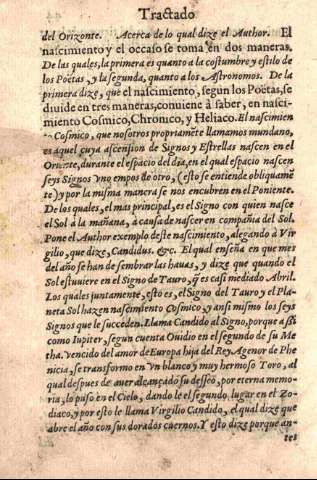 Tractado
del Orizonte. Acerca de lo qual dize el Author. El
nascimiento y el occaso se toma en dos maneras.
De las quales, la primera es quanto a la costumbre y estilo de
los Poëtas, y la segunda, quanto a los Astronomos. De la
primera dize, que el nascimiento, segun los Poëtas, se
diuide en tres maneras, conuiene à saber, en nasci-
miento Cosmico, Chronico, y Heliaco. El nascimien
to Cosmico, que nosotros propriamẽte llamamos mundano,
es aquel cuya ascension de Signos y Estrellas nascen en el
Oriente, durante el espacio del dia, en el qual espacio nascen
seys Signos vno empos de otro, (esto se entiende obliquamẽ
te) y por la misma manera se nos encubren en el Poniente.
De los quales, el mas principal, es el Signo con quien nasce
el Sol à la mañana, à causa de nascer en compañia del Sol.
Pone el Author exemplo deste nascimiento, alegando à Vir
gilio, que dize, Candidus. &c. El qual enseña en que mes
del año se han de sembrar las hauas, y dize que quando el
Sol estuuiere en el Signo de Tauro, q̃ es casi mediado Abril.
Los quales juntamente, esto es, el Signo del Tauro y el Pla-
neta Sol hazen nascimiento Cosmico, y ansi mismo los seys
Signos que le succeden. Llama Candido al Signo, porque aßi
como Iupiter, segun cuenta Ouidio en el segundo de su Me
tha. vencido del amor de Europa hija del Rey Agenor de Phe
nicia, se transformo en vn blanco y muy hermoso Toro, al
qual despues de auer alcançado su desseo, por eterna memo-
ria, lo puso en el Cielo, dando le el segundo lugar en el Zo-
diaco, y por esto le llama Virgilio Candido, el qual dize que
abre el año con sus dorados cuernos. Y esto dize porque an-
tes